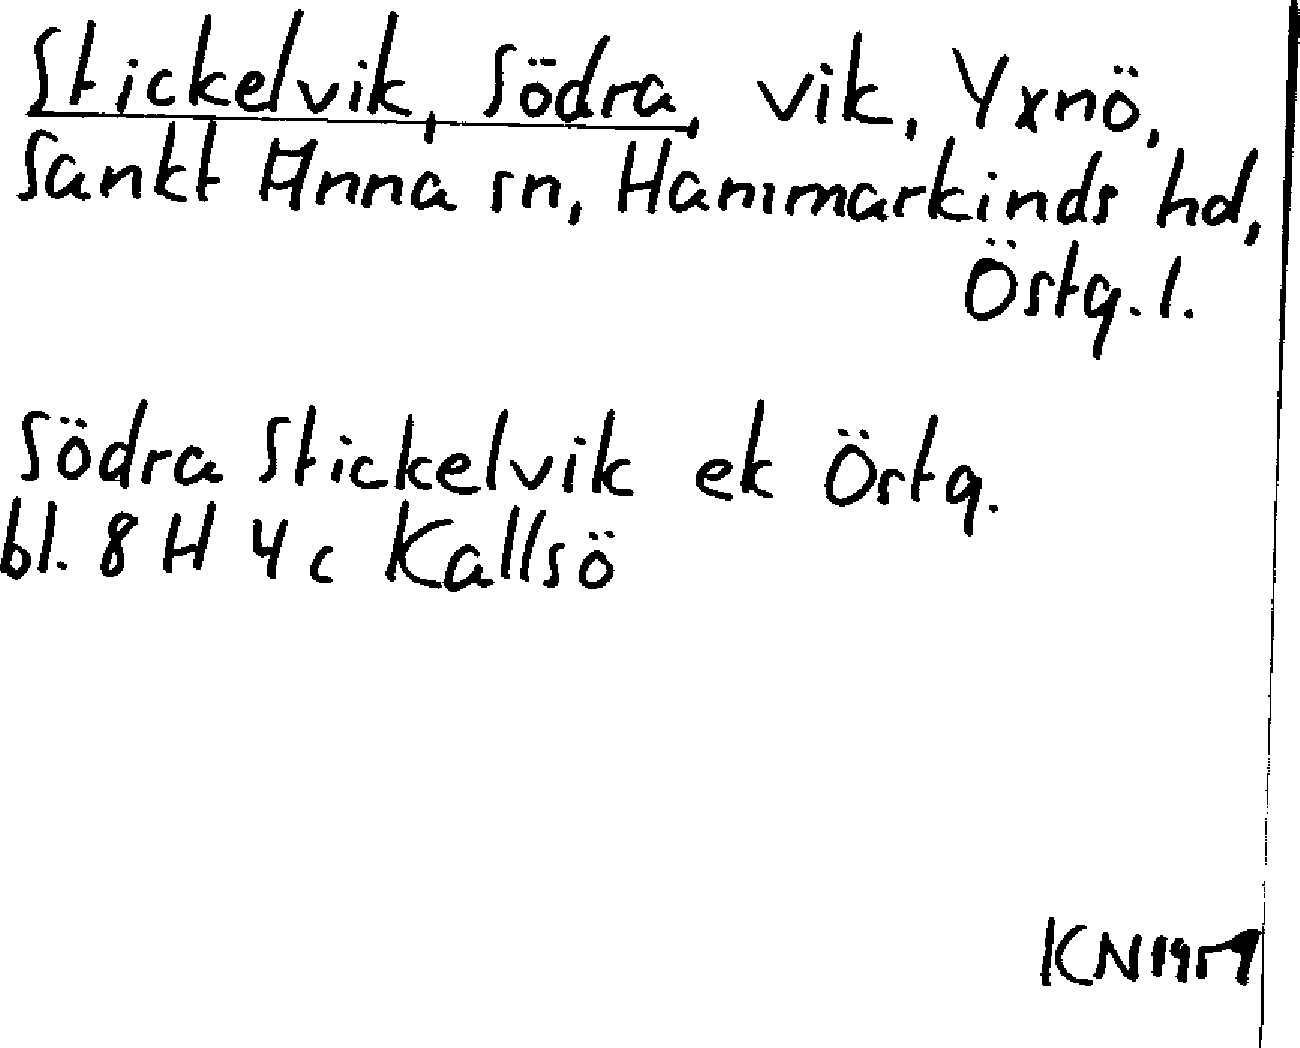 Stickelvik, Södra, vik, Yxnö,
Sankt Anna sn, Hammarkinds hd,
Östg. l.
Södra Stickelvik ek Östg.
bl. 8 H 4 c Kallsö
KN